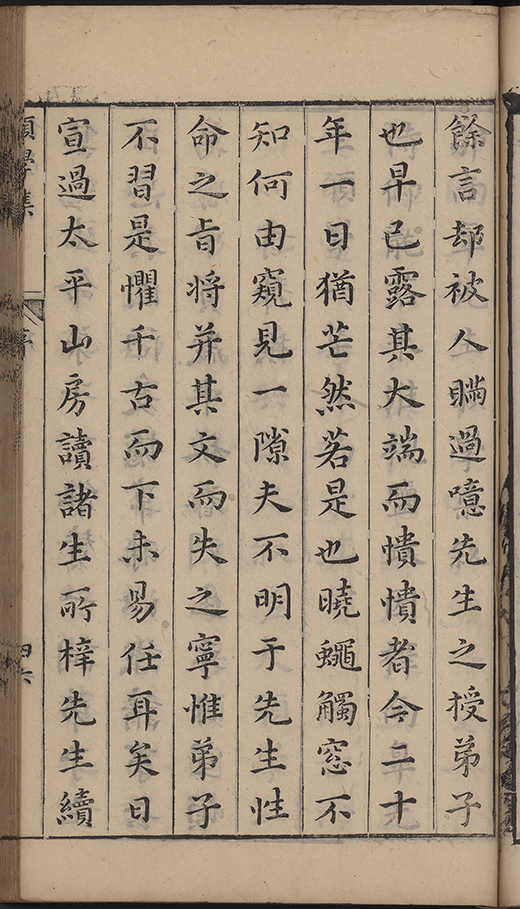 餘言却被人瞞過噫先生之授弟子
也早已露其大端而憒憒者今二十
年一日猶芒然若是也曉蠅觸窓不
知何由窺見一隙夫不明于先生性
命之旨将并其文而失之寧惟弟子
不習是懼千古而下未易任耳矣日
宣過太平山房讀諸生所梓先生續
序